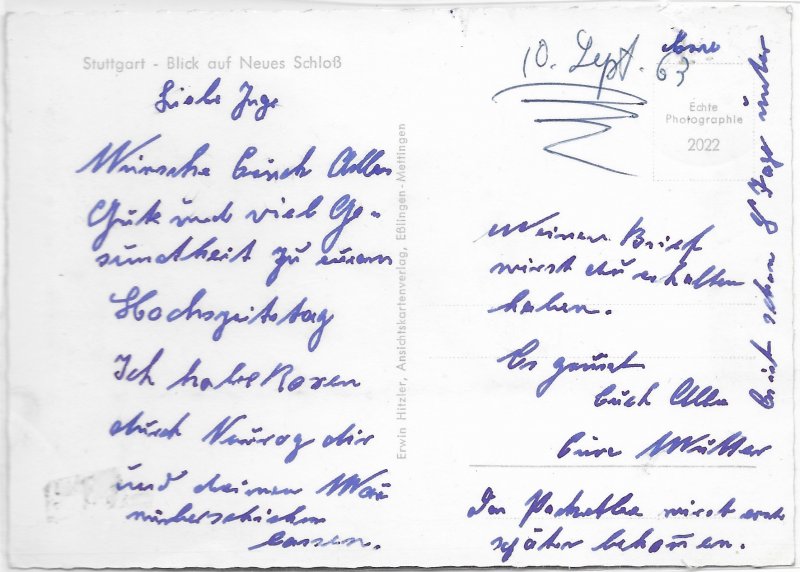 Stuttgart - Blick auf Neues Schloß
Liebe Inge
Wünsche Euch Alles
Gute und viel Ge-
sundheit zu eurem
Hochzeitstag
Ich habe Rosen
durch dir
und deinen
lassen.
Erwin Hitzler, Ansichtskartenverlag, Eßlingen-Mettingen
10. Sept. 63
Echte
Photographie
2022
Meinen Brief
wirst du erhalten
haben.
Es grüsst
Euch Alle
Eure Mutter
Päcketle wirst erst
später bekommen.
schon 8 Tage unter